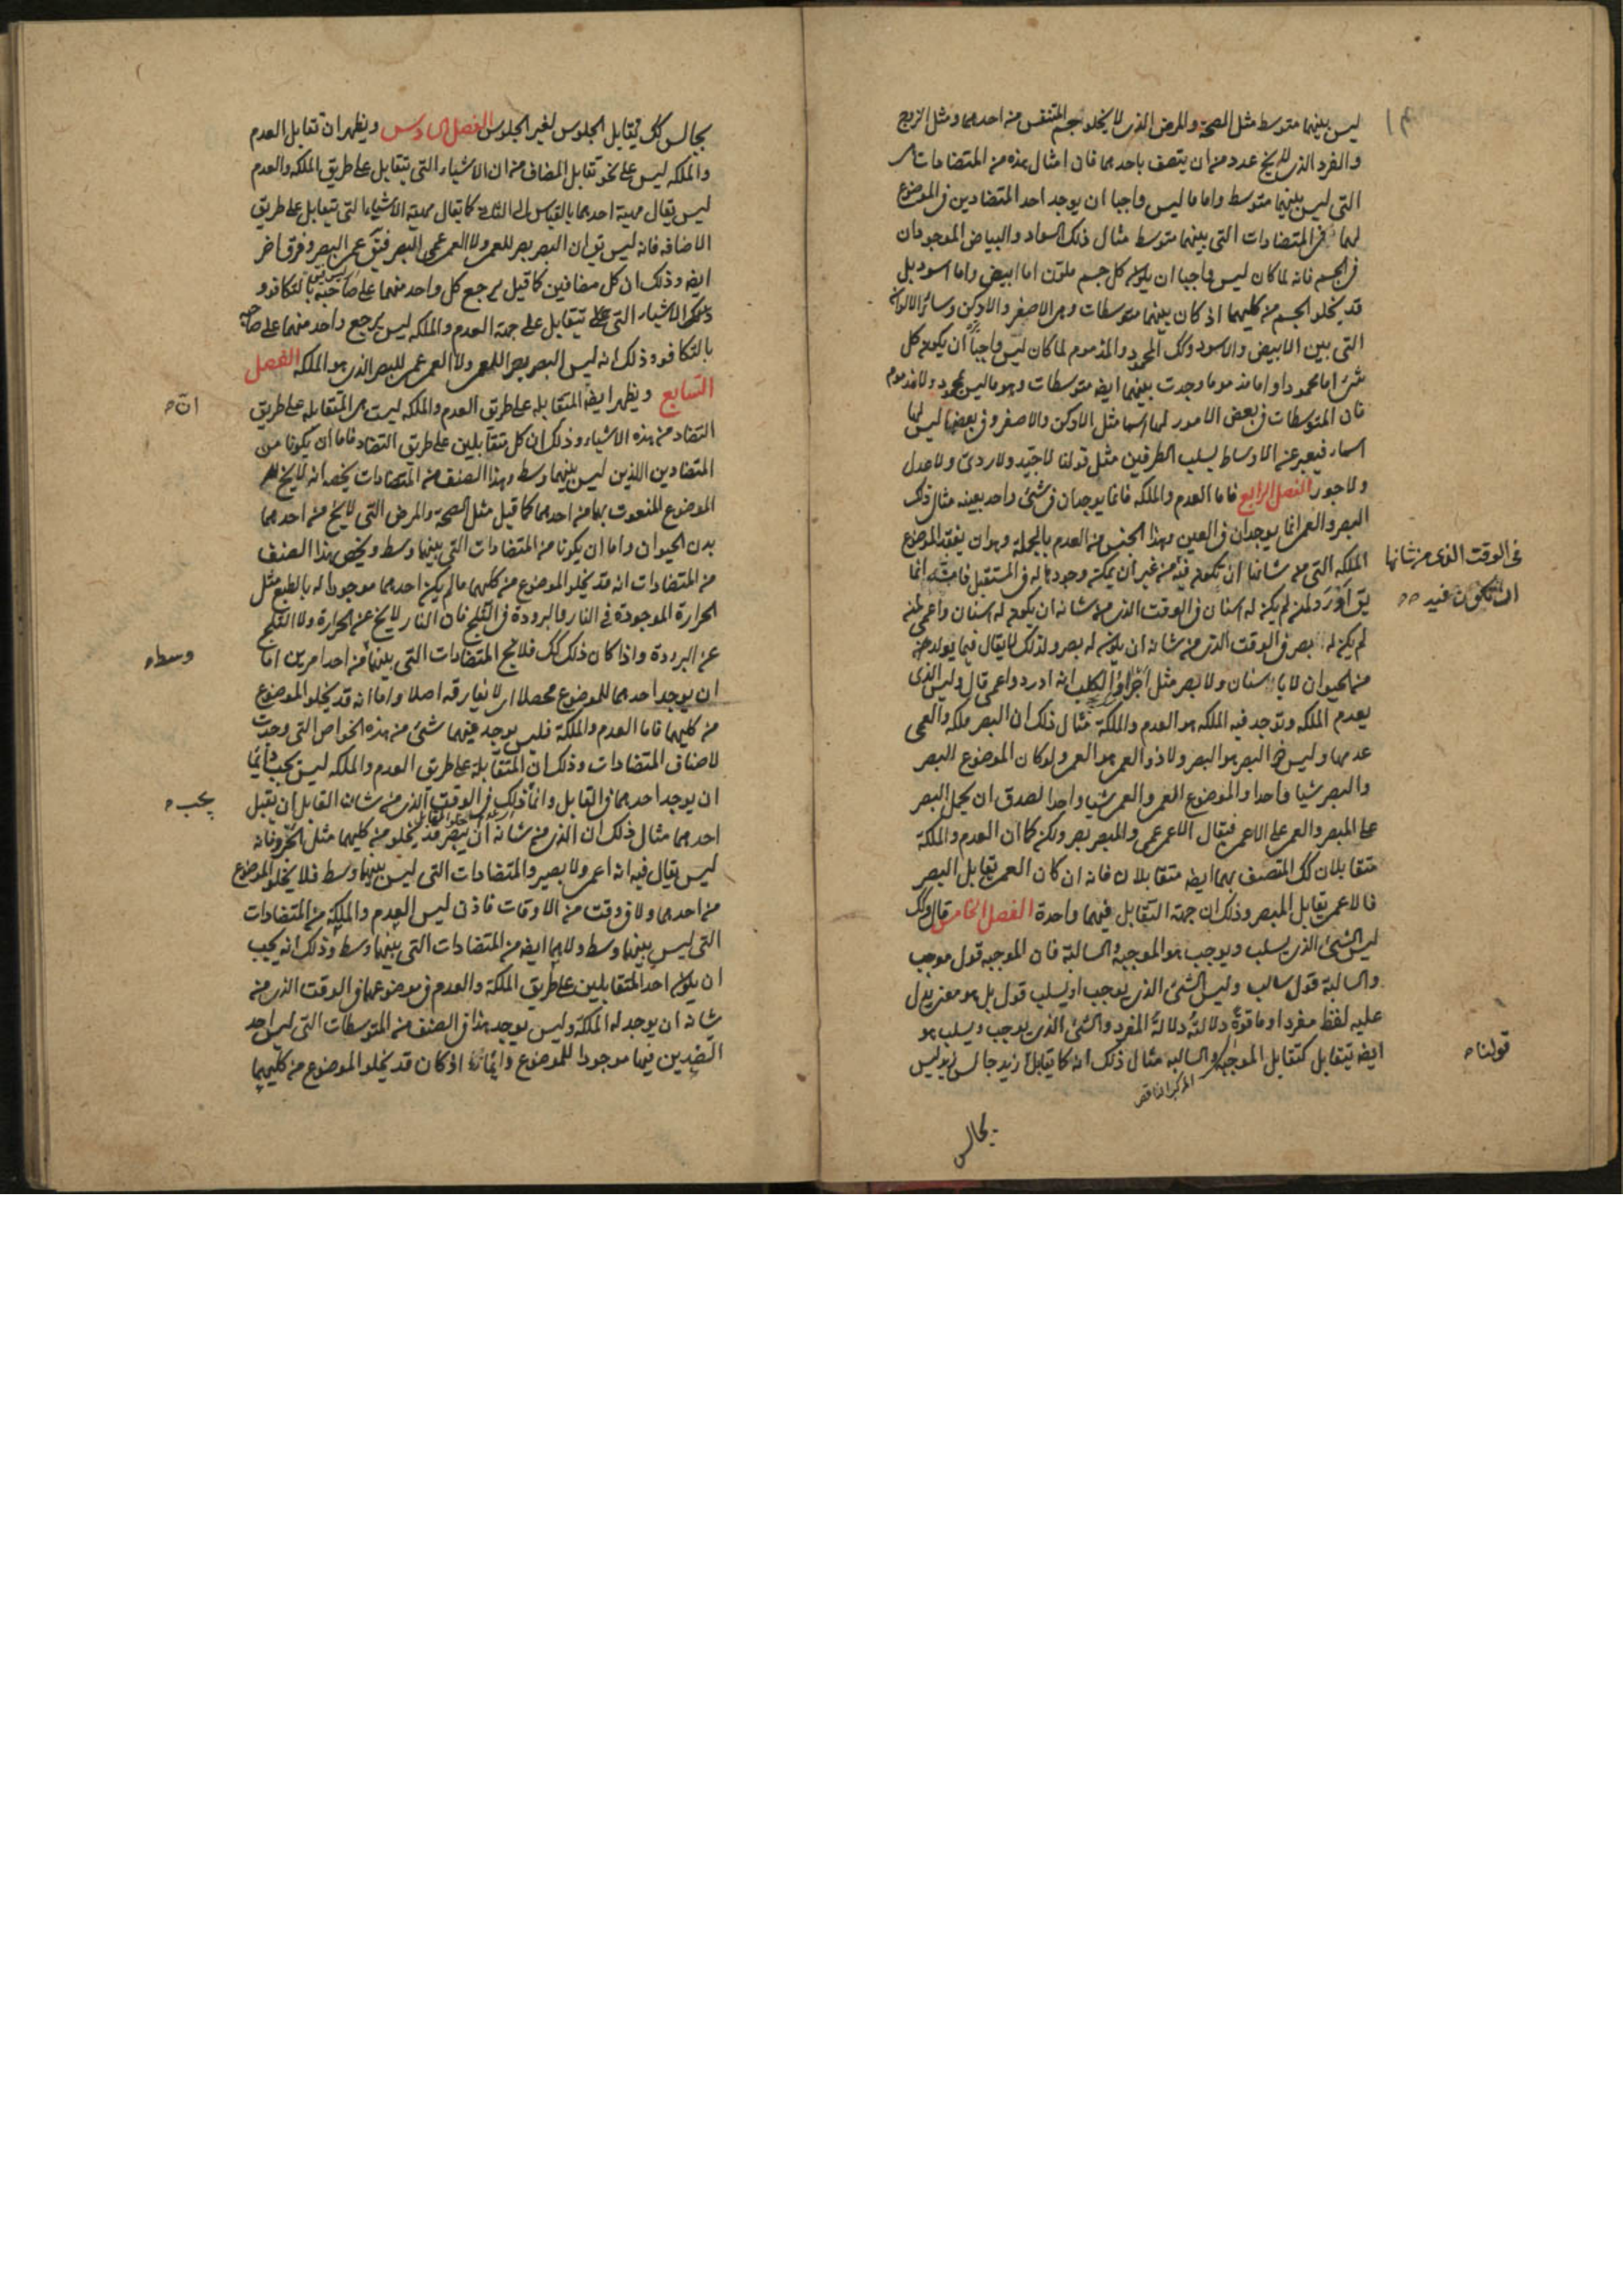 ليس بينهما متوسط مثل الصحة والمرض الذى لا يخلو جسم المتنفس من احدهما ومثل الزوج
والفرد الذى لا يخ عدد من ان يتصف باحدهما فان امثال هذه من المتضادات هى
التى ليس بينهما متوسط واما ما ليس واجبا ان يوجد احد المتضادين فى الموضوع
لهما فهى المتضادات التى بينهما متوسط مثال ذلك السواد والبياض الموجودان
فى الجسم فانه لما كان ليس واجبا ان يكون كل جسم ملون اما ابيض واما اسود بل
قد يخلو الجسم من كليهما اذ كان بينهما متوسطات وهى الاصفر والادكن وسائر الالوان
التى بين الابيض والاسود وكك المحمود والمذموم لما كان ليس واجبا ان يكون كل
شئ اما محمودا واما مذموما وجدت بينهما ايضه متوسطات وهو ما ليس بمحمود ولا مذموم
فان المتوسطات فى بعض الامور لها اسما مثل الادكن والاصفر وفى بعضها ليس لها
اسماء فيعبر عن الاوساط بسلب الطرفين مثل قولنا لا جيد ولا ردئ ولا عدل
ولا جور الفصل الرابع فاما العدم والملكه فانما يوجدان فى شئ واحد بعينه مثال ذلك
البصر والعمى انما يوجدان فى العين وهذا الجنس من العدم بالجملة هو ان يفقد الموضوع
الملكه التى من شانها ان تكون فيه من غير ان يمكن وجودها له فى المستقبل
فى الوقت الذى من شانها
ان تكون فيه
يق ادرد لمن لم يكن له اسنان فى الوقت الذى من شانه ان يكون له اسنان واعمى لمن
لم يكن له بصر فى الوقت الذى من شانه ان يكون له بصر ولذلك لا يقال فيما يولد من
من الحيوان لا باسنان ولا بصر مثل اجراء الكلب انه ادرد واعمى قال وليس الذى
يعدم الملكه وتوجد فيه الملكه هو العدم والملكة مثال ذلك ان البصر ملكه والعمى
عدمها وليس ذو البصر هو البصر ولا ذو العمى هو العمى ولو كان الموضوع البصر
والبصر شيا واحدا والموضوع العمى والعمى شيا واحدا لصدق ان يحمل البصر
على المبصر والعمى على الاعمى فيقال الاعمى عمى والمبصر بصر ولكن كما ان العدم والملكة
متقابلان كك المتصف بهما ايضه متقابلان فانه ان كان العمى يقابل البصر
فالاعمى يقابل المبصر وذلك ان جهة التقابل فيهما واحدة الفصل الخامس قال وكك
ليس الشئ الذى يسلب ويوجب هو الموجبة والسالبة فان الموجبه قول موجب
والسالبة قول سالب وليس الشئ الذى يوجب او يسلب قول بل هو معنى يدل
عليه لفظ مفرد او ما قوة دلالته دلالة المفرد والشئ الذى يوجب ويسلب هو
ايضه يتقابل كتقابل الموجبه والسالبه مثال ذلك انه كما يقابل زيد جالس زيد ليس
قولنا
المركب الناقص
بجالس
بجالس كك يقابل الجلوس لغير الجلوس الفصل السادس ويظهر ان تقابل العدم
والملكه ليس على نحو تقابل المضاف من ان الاشياء التى تتقابل على طريق الملكه والعدم
ليس يقال مهية احدهما بالقياس الى الثانى كما يقال مهية الاشياء التى تتقابل على طريق
الاضافه فانه ليس يق ان البصر بصر للعمى ولا العمى عمى البصر فيق عمى البصر وفرق اخر
ايضه وذلك ان كل مضافين كما قيل يرجع كل واحد منهما على صاحبه بالتكافوء
الاشياء التى تتقابل على جهة العدم والملكه ليس يرجع واحد منهما على صاحبه
بالتكافوء وذلك انه ليس البصر بصر اللعمى ولا العمى عمى للبصر الذى هو الملكه الفصل
السابع ويظهر ايضه المتقابله على طريق العدم والملكه ليست هى المتقابله على طريق
ان
التضاد من هذه الاشياء وذلك ان كل متقابلين على طريق التضاد فاما ان يكونا من
المتضادين اللذين ليس بينهما وسط وهذا الصنف من المتضادات يخصه انه لا يخ
الموضوع المنعوت بها من احدهما كما قيل مثل الصحة والمرض التى لا يخ من احدهما
بدن الحيوان واما ان يكونا من المتضادات التى بينهما وسط ويخص هذا الصنف
من المتضادات انه قد يخلو الموضوع من كليهما ما لم يكن احدهما موجودا له بالطبع مثل
الحرارة الموجودة فى النار والبرودة فى الثلج فان النار لا يخ عن الحرارة ولا الثلج
عن البرودة واذا كان ذلك كك فلا يخ المتضادات التى بينهما من احد امرين اما
وسط
ان يوجد احدهما للموضوع محصلا اى لا يفارقه اصلا واما انه قد يخلو الموضوع
من كليهما فاما العدم والملكة فليس يوجد فيهما شئ من هذه الخواص التى وجدت
لاصناف المتضادات وذلك ان المتقابلة على طريق العدم والملكه ليس يجب دائما
ان يوجد احدهما فى القابل وانما ذلك فى الوقت الذى من شان القابل ان يقبل
يجب
احدهما مثال ذلك ان الذى من شانه ان يبصر قد يخلو من كليهما مثل الجرو فانه
ليس يقال فيه انه اعمى ولا بصير والمتضادات التى ليس بينهما وسط فلا يخلو الموضوع
من احدهما ولا فى وقت من الاوقات فاذن ليس العدم والملكة من المتضادات
التى ليس بينهما وسط ولا هما ايضه من المتضادات التى بينهما وسط وذلك انه يجب
ان يكون احد المتقابلين على طريق الملكة والعدم فى موضوعهما فى الوقت الذى من
شانه ان يوجد له الملكة وليس يوجد هذا فى الصنف من المتوسطات التى ليس احد
الضدين فيها موجودا للموضوع دائما اذ كان قد يخلو الموضوع من كليهما